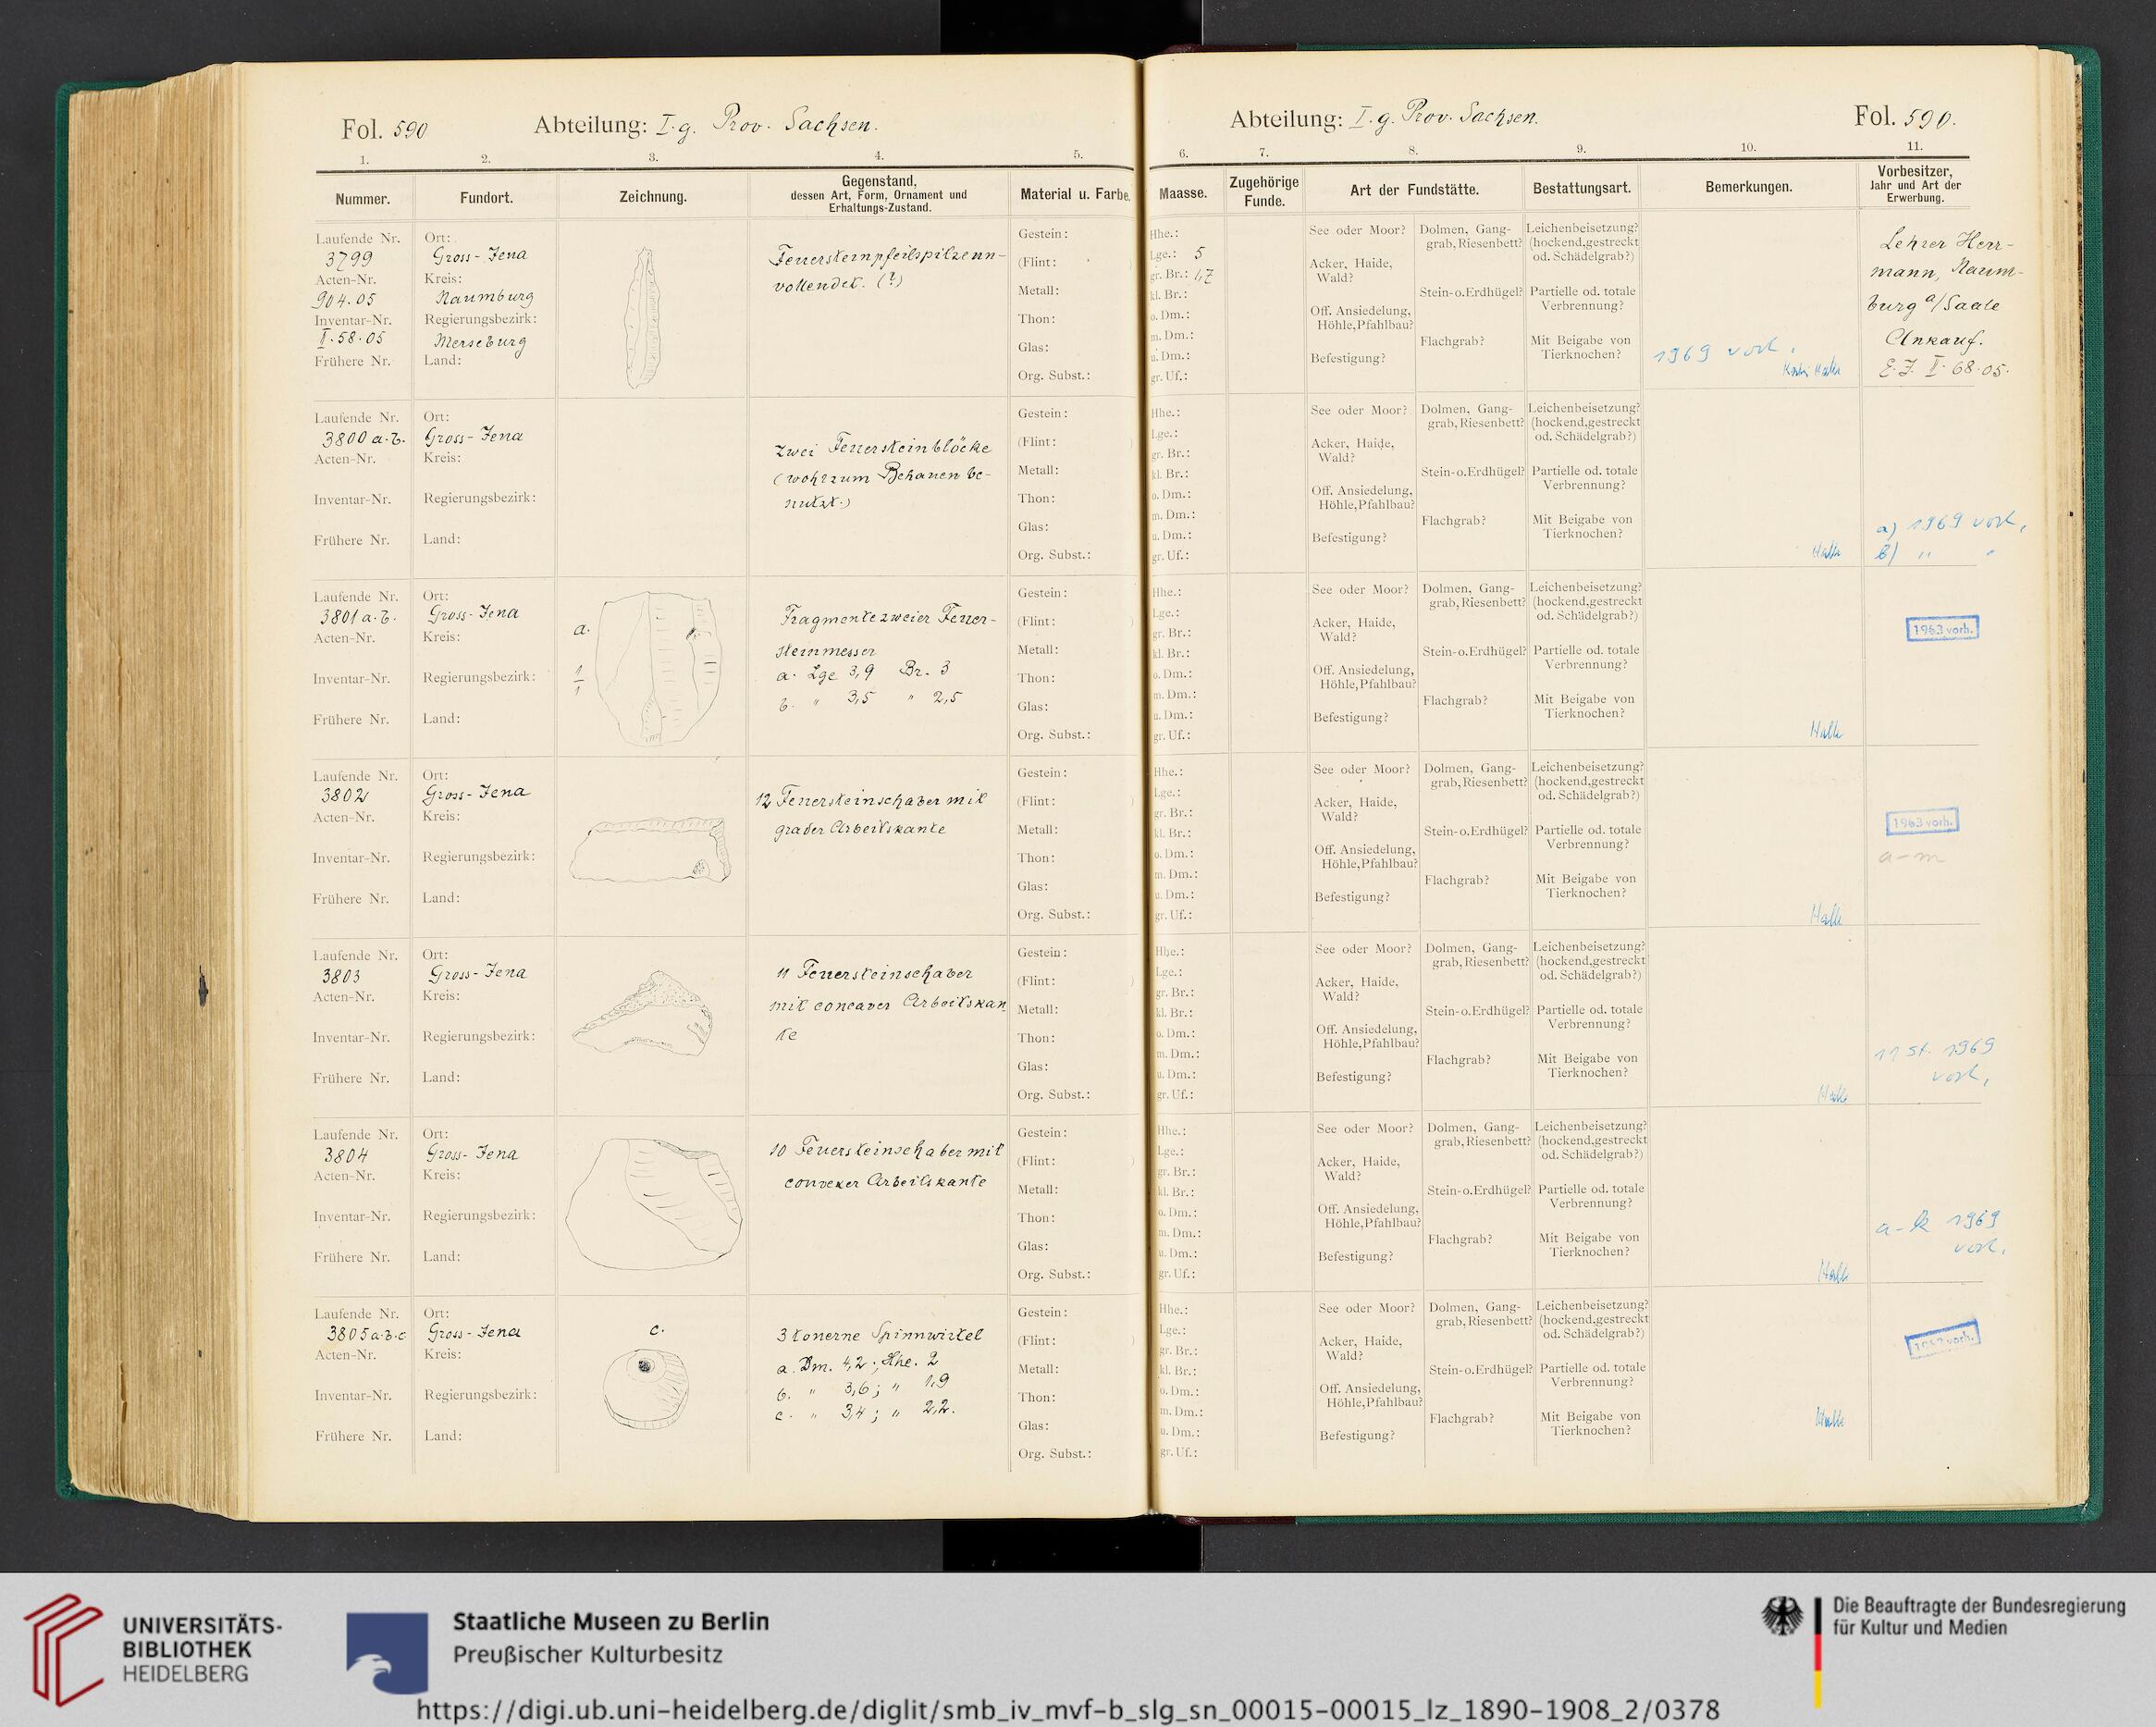 Fol. 590 Abteilung: I. g. Prov. Sachsen.
1. 2. 3. 4. 5.
Nummer. Fundort. Zeichnung. Gegenstand, dessen Art, Form, Ornament und Erhaltungs-Zustand. Material u. Farbe.
Laufende Nr. 3799
Acten-Nr. 904.05
Inventar-Nr. II.58.05
Frühere Nr.
Ort: Gross-Jena
Kreis: Naumburg
Regierungsbezirk: Merseburg
Land:
Feuersteinpfeilspitze un-
vollendet. (?)
Gestein:
(Flint: )
Metall:
Thon:
Glas:
Org. Subst.:
Laufende Nr. 3800 a.b.
Acten-Nr.
Inventar-Nr.
Frühere Nr.
Ort: Gross-Jena
Kreis:
Regierungsbezirk:
Land:
Zwei Feuersteinblöcke
(wohl zum Behauen be-
nutzt.)
Gestein:
(Flint: )
Metall:
Thon:
Glas:
Org. Subst.:
Laufende Nr. 3801 a.b.
Acten-Nr.
Inventar-Nr.
Frühere Nr.
Ort: Gross-Jena
Kreis:
Regierungsbezirk:
Land:
a.
1/1
Fragmente zweier Feuer-
steinmesser
a. Lge 3,9 Br. 3
b. " 3,5 " 2,5
Gestein:
(Flint: )
Metall:
Thon:
Glas:
Org. Subst.:
Laufende Nr. 3802
Acten-Nr.
Inventar-Nr.
Frühere Nr.
Ort: Gross-Jena
Kreis:
Regierungsbezirk:
Land:
12 Feuersteinschaber mit
grader Arbeitskante
Gestein:
(Flint: )
Metall:
Thon:
Glas:
Org. Subst.:
Laufende Nr. 3803
Acten-Nr.
Inventar-Nr.
Frühere Nr.
Ort: Gross-Jena
Kreis:
Regierungsbezirk:
Land:
11 Feuersteinschaber
mit concaver Arbeitskan
te
Gestein:
(Flint: )
Metall:
Thon:
Glas:
Org. Subst.:
Laufende Nr. 3804
Acten-Nr.
Inventar-Nr.
Frühere Nr.
Ort: Gross-Jena
Kreis:
Regierungsbezirk:
Land:
10 Feuersteinschaber mit
convexer Arbeitskante
Gestein:
(Flint: )
Metall:
Thon:
Glas:
Org. Subst.:
Laufende Nr. 3805 a.b.c
Acten-Nr.
Inventar-Nr.
Frühere Nr.
Ort: Gross-Jena
Kreis:
Regierungsbezirk:
Land:
c.
3 tonerne Spinnwirtel
a. Dm. 4,2; Hhe. 2
b. " 3,6; " 1,9
c. " 3,4; " 2,2.
Gestein:
(Flint: )
Metall:
Thon:
Glas:
Org. Subst.:
Abteilung: I. g. Prov. Sachsen. Fol. 590.
6. 7. 8. 9. 10. 11.
Maasse. Zugehörige Funde. Art der Fundstätte. Bestattungsart. Bemerkungen. Vorbesitzer, Jahr und Art der Erwerbung.
Hhe.:
Lge.: 5
gr. Br.: 1,7
kl. Br.:
o. Dm.:
m. Dm.:
u. Dm.:
gr. Uf.:
See oder Moor?
Acker, Haide, Wald?
Off. Ansiedelung, Höhle, Pfahlbau?
Befestigung?
Dolmen, Gang-
grab, Riesenbett?
Stein- o. Erdhügel?
Flachgrab?
Leichenbeisetzung?
(hockend, gestreckt
od. Schädelgrab?)
Partielle od. totale
Verbrennung?
Mit Beigabe von
Tierknochen?
1969 vorh.
Lehrer Herr-
mann, Naum-
burg a/Saale
Ankauf.
E. J. II. 68.05.
Hhe.:
Lge.:
gr. Br.:
kl. Br.:
o. Dm.:
m. Dm.:
u. Dm.:
gr. Uf.:
See oder Moor?
Acker, Haide, Wald?
Off. Ansiedelung, Höhle, Pfahlbau?
Befestigung?
Dolmen, Gang-
grab, Riesenbett?
Stein- o. Erdhügel?
Flachgrab?
Leichenbeisetzung?
(hockend, gestreckt
od. Schädelgrab?)
Partielle od. totale
Verbrennung?
Mit Beigabe von
Tierknochen?
Halle
a) 1969 vorh.
b) " "
Hhe.:
Lge.:
gr. Br.:
kl. Br.:
o. Dm.:
m. Dm.:
u. Dm.:
gr. Uf.:
See oder Moor?
Acker, Haide, Wald?
Off. Ansiedelung, Höhle, Pfahlbau?
Befestigung?
Dolmen, Gang-
grab, Riesenbett?
Stein- o. Erdhügel?
Flachgrab?
Leichenbeisetzung?
(hockend, gestreckt
od. Schädelgrab?)
Partielle od. totale
Verbrennung?
Mit Beigabe von
Tierknochen?
Halle
1963 vorh.
Hhe.:
Lge.:
gr. Br.:
kl. Br.:
o. Dm.:
m. Dm.:
u. Dm.:
gr. Uf.:
See oder Moor?
Acker, Haide, Wald?
Off. Ansiedelung, Höhle, Pfahlbau?
Befestigung?
Dolmen, Gang-
grab, Riesenbett?
Stein- o. Erdhügel?
Flachgrab?
Leichenbeisetzung?
(hockend, gestreckt
od. Schädelgrab?)
Partielle od. totale
Verbrennung?
Mit Beigabe von
Tierknochen?
Halle
1963 vorh.
a-m
Hhe.:
Lge.:
gr. Br.:
kl. Br.:
o. Dm.:
m. Dm.:
u. Dm.:
gr. Uf.:
See oder Moor?
Acker, Haide, Wald?
Off. Ansiedelung, Höhle, Pfahlbau?
Befestigung?
Dolmen, Gang-
grab, Riesenbett?
Stein- o. Erdhügel?
Flachgrab?
Leichenbeisetzung?
(hockend, gestreckt
od. Schädelgrab?)
Partielle od. totale
Verbrennung?
Mit Beigabe von
Tierknochen?
Halle
11 St. 1969
vorh.
Hhe.:
Lge.:
gr. Br.:
kl. Br.:
o. Dm.:
m. Dm.:
u. Dm.:
gr. Uf.:
See oder Moor?
Acker, Haide, Wald?
Off. Ansiedelung, Höhle, Pfahlbau?
Befestigung?
Dolmen, Gang-
grab, Riesenbett?
Stein- o. Erdhügel?
Flachgrab?
Leichenbeisetzung?
(hockend, gestreckt
od. Schädelgrab?)
Partielle od. totale
Verbrennung?
Mit Beigabe von
Tierknochen?
Halle
a-k 1969
vorh.
Hhe.:
Lge.:
gr. Br.:
kl. Br.:
o. Dm.:
m. Dm.:
u. Dm.:
gr. Uf.:
See oder Moor?
Acker, Haide, Wald?
Off. Ansiedelung, Höhle, Pfahlbau?
Befestigung?
Dolmen, Gang-
grab, Riesenbett?
Stein- o. Erdhügel?
Flachgrab?
Leichenbeisetzung?
(hockend, gestreckt
od. Schädelgrab?)
Partielle od. totale
Verbrennung?
Mit Beigabe von
Tierknochen?
Halle
vorh.
UNIVERSITÄTS-
BIBLIOTHEK
HEIDELBERG
Staatliche Museen zu Berlin
Preußischer Kulturbesitz
Die Beauftragte der Bundesregierung
für Kultur und Medien
https://digi.ub.uni-heidelberg.de/diglit/smb_iv_mvf-b_slg_sn_00015-00015_lz_1890-1908_2/0378